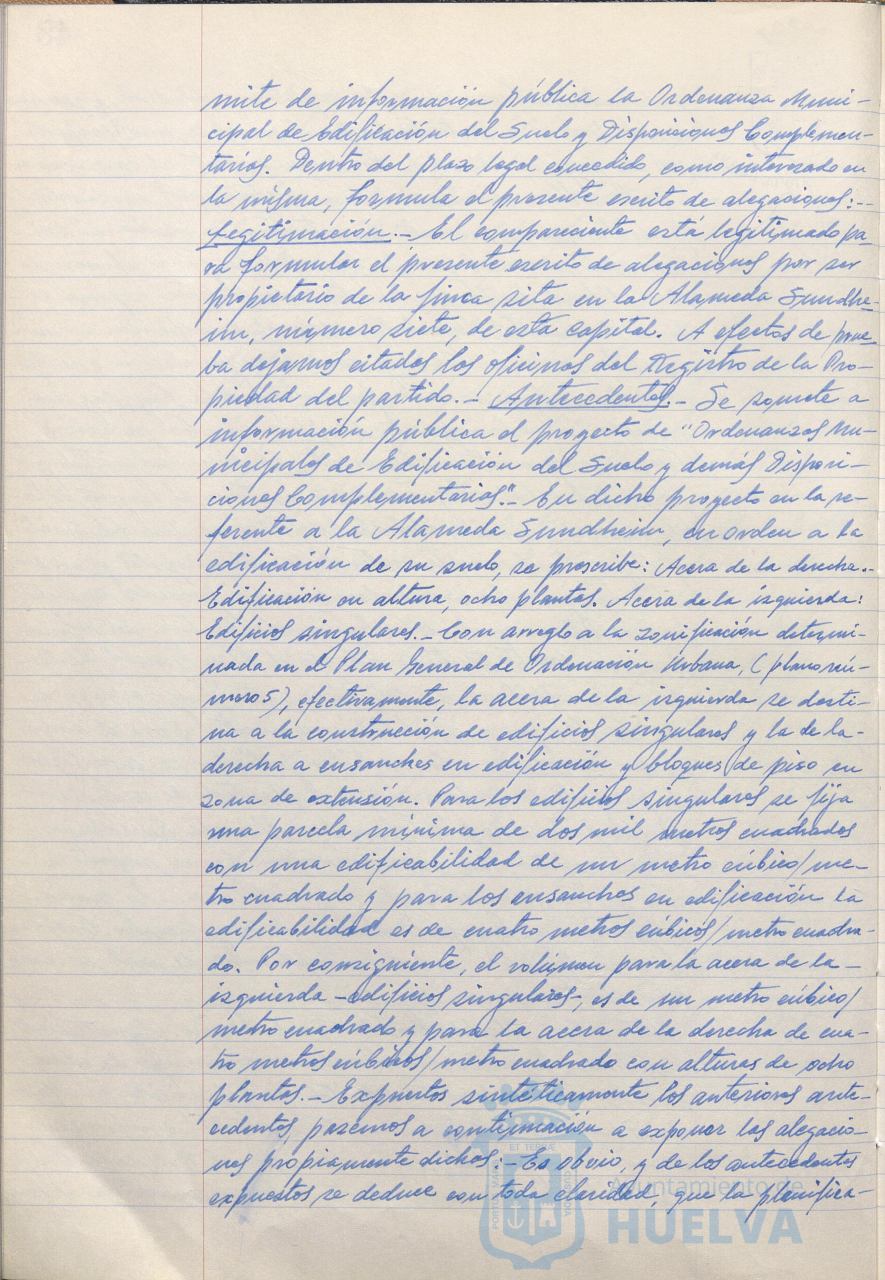 mite de información pública la Ordenanza Muni-
cipal de Edificación del Suelo y Disposiciones Complemen-
tarias. Dentro del plazo legal concedido, como interesado en
la misma, formula el presente escrito de alegaciones:--
Legitimación.- El compareciente está legitimado pa-
ra formular el presente escrito de alegaciones por ser
propietario de la finca sita en la Alameda Sundhe-
im, número siete, de esta capital. A efectos de prue-
ba dejamos citados los oficinas del Registro de la Pro-
piedad del partido.- Antecedentes.- Se somete a
información pública el proyecto de "Ordenanzas Mu-
nicipales de Edificación del Suelo y demás Disposi-
ciones Complementarias".- En dicho proyecto en lo re-
ferente a la Alameda Sundheim, en orden a la
edificación de su suelo, se prescribe: Acera de la derecha.-
Edificación en altura, ocho plantas. Acera de la izquierda:
Edificios singulares.- Con arreglo a la zonificación determi-
nada en el Plan General de Ordenación Urbana, (plano nú-
mero 5), efectivamente, la acera de la izquierda se desti-
na a la construcción de edificios singulares y la de la-
derecha a ensanches en edificación y bloques de piso en
zona de extensión. Para los edificios singulares se fija
una parcela mínima de dos mil metros cuadrados
con una edificabilidad de un metro cúbico/me-
tro cuadrado y para los ensanches en edificación la
edificabilidad es de cuatro metros cúbicos/metro cuadra-
do. Por consiguiente, el volúmen para la acera de la-
izquierda -edificios singulares-, es de un metro cúbico/
metro cuadrado y para la acera de la derecha de cua-
tro metros cúbicos/metro cuadrado con alturas de ocho
plantas.- Expuestos sintéticamente los anteriores ante-
cedentes, pasemos a continuación a exponer las alegacio-
nes propiamente dichas:- Es obvio, y de los antecedentes
expuestos se deduce con toda claridad, que la planifica-
Ayuntamiento de
HUELVA